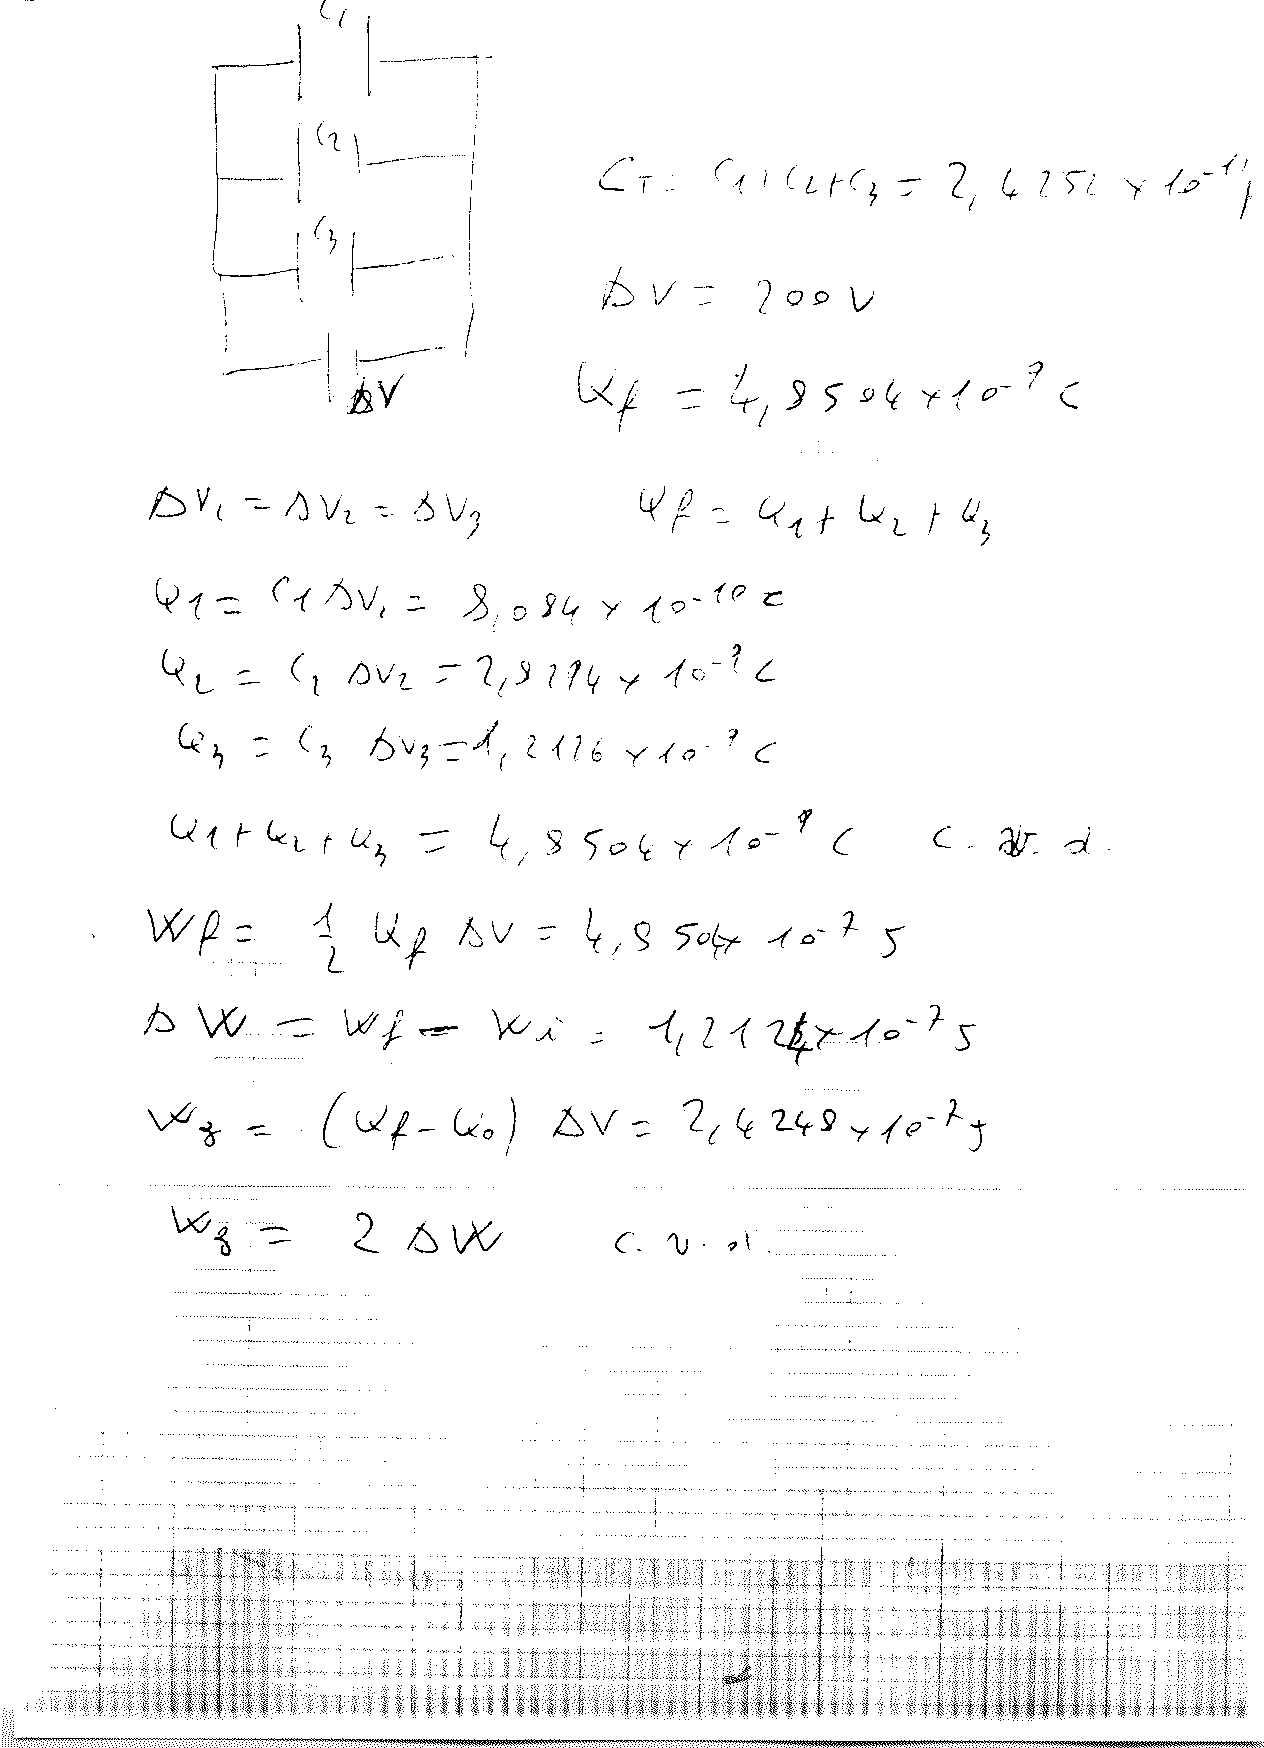 C1
C2
C3
ΔV
CT = C1+C2+C3 = 2,4252 × 10^-11 F
ΔV = 200V
Qf = 4,8504 × 10^-9 C
ΔV1 = ΔV2 = ΔV3
Qf = Q1 + Q2 + Q3
Q1 = C1 ΔV1 = 8,084 × 10^-10 C
Q2 = C2 ΔV2 = 2,8294 × 10^-9 C
Q3 = C3 ΔV3 = 1,2126 × 10^-9 C
Q1 + Q2 + Q3 = 4,8504 × 10^-9 C c.v.d.
Wf = 1/2 Qf ΔV = 4,8504 × 10^-7 J
ΔW = Wf - Wi = 1,2124 × 10^-7 J
Wg = (Qf - Q0) ΔV = 2,4248 × 10^-7 J
Wg = 2 ΔW c.v.d.